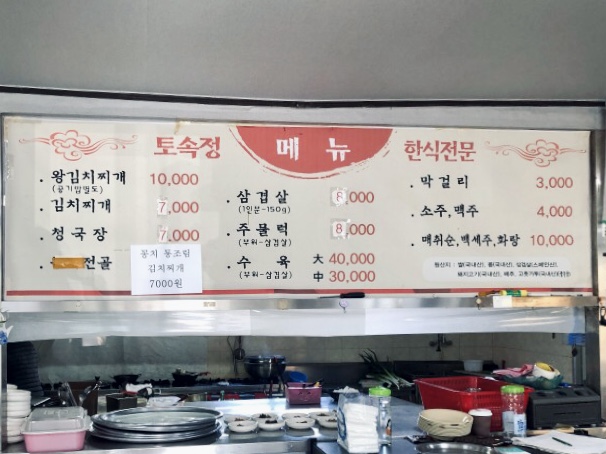 토속정 메뉴 한식전문
. 왕김치찌개 10,000
(공기밥별도)
. 김치찌개 7,000
. 청국장 7,000
전골
꽁치 통조림
김치찌개
7000원
. 삼겹살 8,000
(1인분-150g)
. 주물럭 8,000
(부위-삼겹살)
. 수육 大 40,000
(부위-삼겹살) 中 30,000
. 막걸리 3,000
. 소주,맥주 4,000
. 매취순,백세주,화랑 10,000
원산지 : 쌀(국내산), 콩(국내산), 삼겹살(스페인산),
돼지고기(국내산), 배추, 고춧가루(국내산)